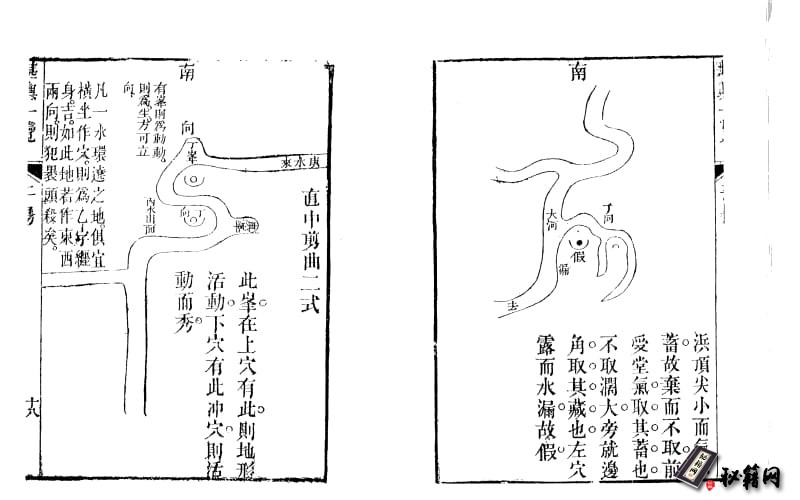 南
大河
丁向
假
漏
去
浜頂尖小而氣
蓄故棄而不取前
愛堂氣取其蓄也
不取濶大旁就邊
角取其藏也左穴
露而水漏故假
南
向
丁峯
庚水來
丁向
直中剪曲二式
此峯在上穴有此則地形
活動下穴有此冲穴則活
動而秀。
有峯則爲動動
則爲生方可立
向
凡一水環遶之地。俱宜
橫坐作穴。則爲乙字纏
身。吉。如此地若作東西
兩向。則犯裹頭殺矣。
堪輿一覽
十八
秘籍网